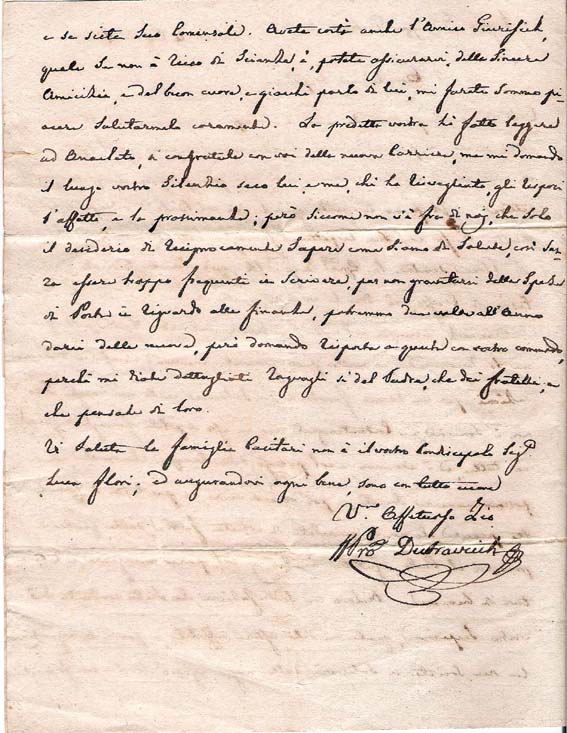 e se siete seco Comensale. Avete costì anche l'Amico Giurisich,
quale se non è ricco di Scienza, è, potete assicurarvi, della sincera
Amicizia, e del buon cuore, e giacchè parlo di lui, mi farete sommo pia-
cere salutarmelo caramente. La predetta vostra hò fatto leggere
ad Anacleto, si confratula con voi della nuova Carriera, ma mi domandò
il lungo vostro Silenzio seco lui e me, chi ha risvegliato, gli risposi
l'affetto, e la prossimanza; però siccome non v'è fra di noj, che solo
il desiderio di reciprocamente sapere come stiamo di Salute, così sen-
za essere troppo frequenti in scrivere, per non gravitarsi della Spesa
di Posta in riguardo alle finanze, potremmo due volte all'Anno
darci delle nuove, però domando risposta a questa con vostro commodo,
perchè mi diate dettagliati ragvagli sì del Padre, che dei fratelli, e
che pensate di loro.
Vi saluta la famiglia non è il vostro Condiscepolo Sigr
Luca Flori; ed augurandovi ogni bene, sono con tutto cuore
Vro Affetmo Zio
Dubravcich